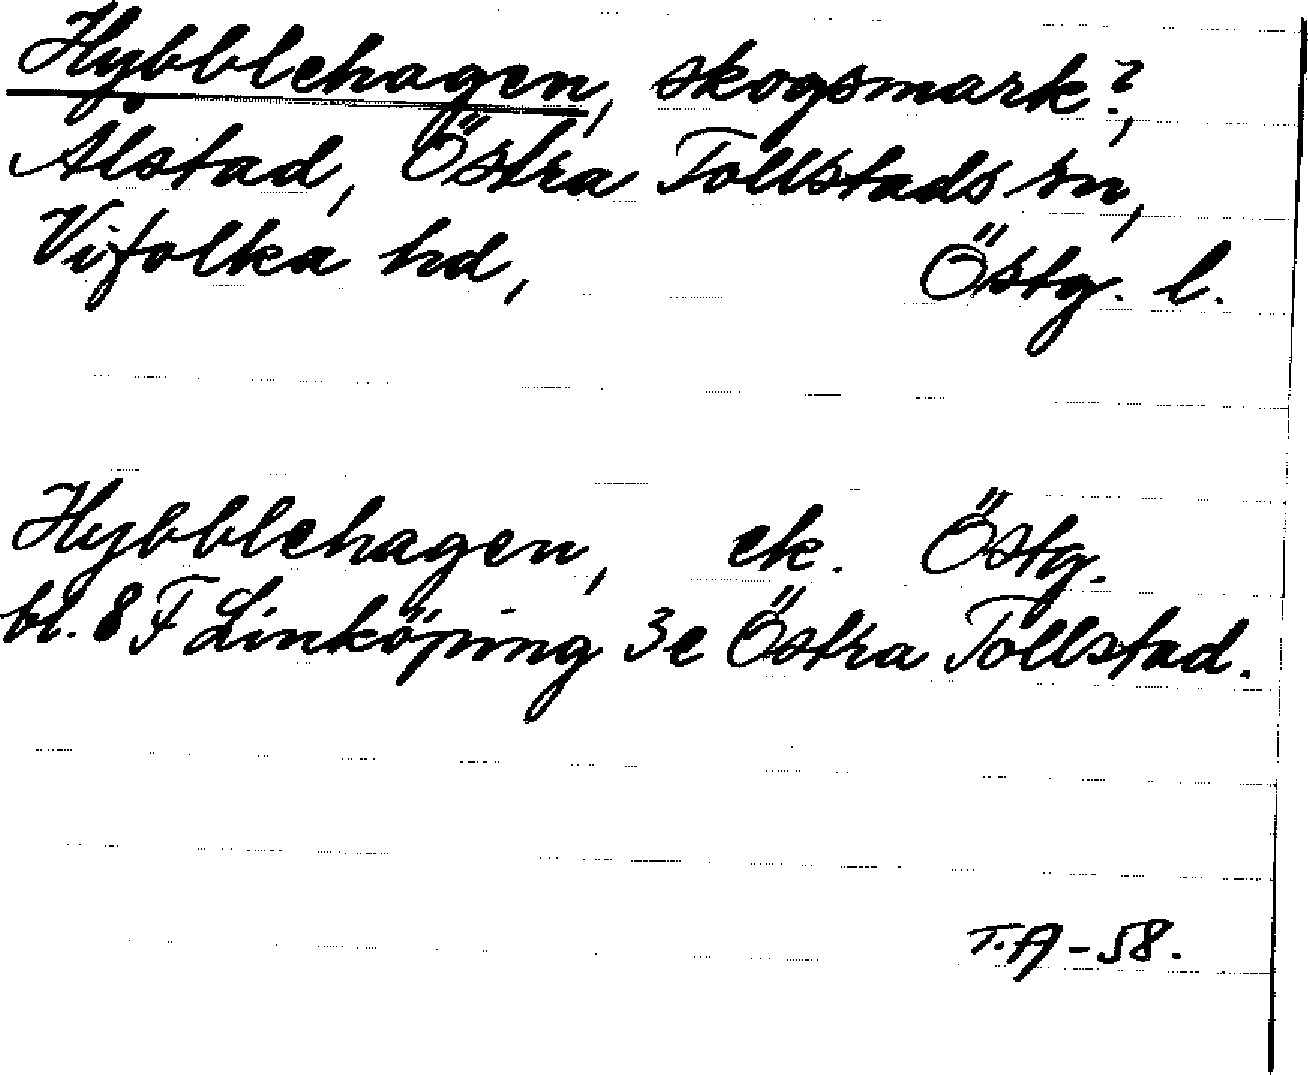 Hybblehagen, skogsmark?,
Ålstad, Östra Tollstads sn,
Vifolka hd, Östg. l.
Hybblehagen, ek. Östg.
bl. 8 F Linköping 3e Östra Tollstad.
T.A - 58.